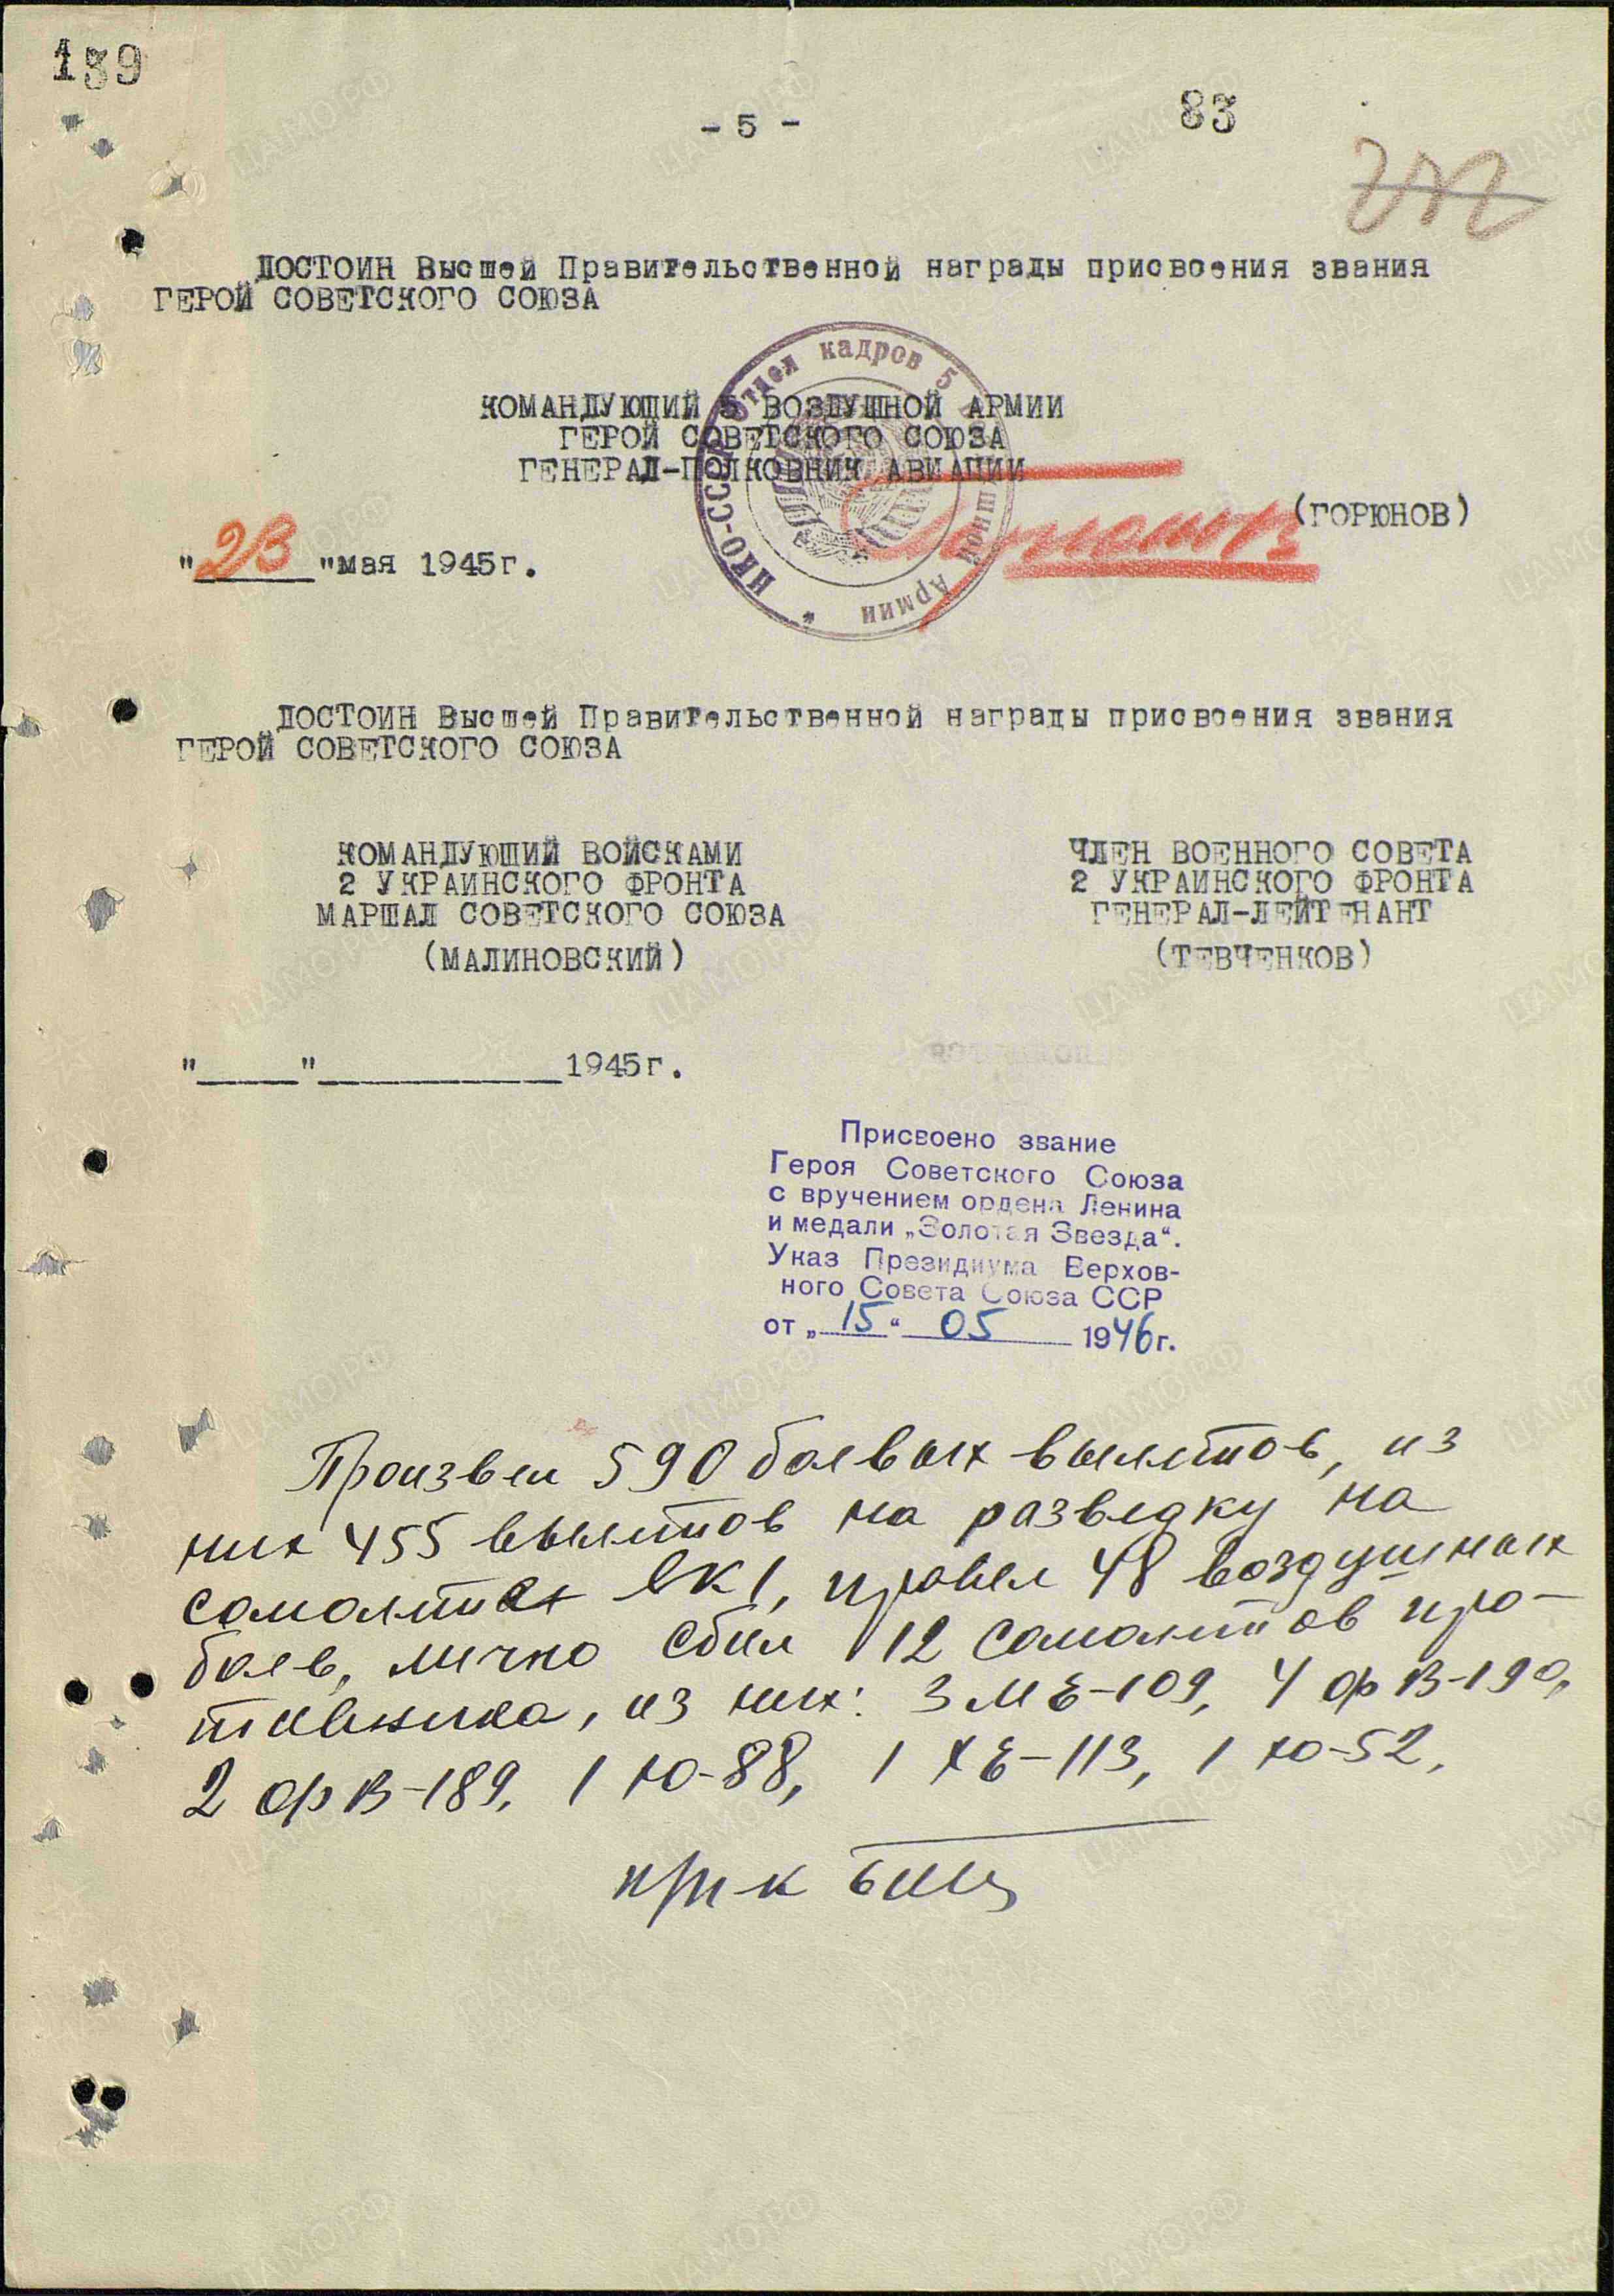 139
83
- 5 -
ДОСТОИН Высшей Правительственной награды присвоения звания
ГЕРОЙ СОВЕТСКОГО СОЮЗА
КОМАНДУЮЩИЙ 5 ВОЗДУШНОЙ АРМИИ
ГЕРОЙ СОВЕТСКОГО СОЮЗА
ГЕНЕРАЛ-ПОЛКОВНИК АВИАЦИИ
НКО-СССР Отдел кадров 5 Армии
(ГОРЮНОВ)
"23"мая 1945г.
ДОСТОИН Высшей Правительственной награды присвоения звания
ГЕРОЙ СОВЕТСКОГО СОЮЗА
КОМАНДУЮЩИЙ ВОЙСКАМИ
2 УКРАИНСКОГО ФРОНТА
МАРШАЛ СОВЕТСКОГО СОЮЗА
(МАЛИНОВСКИЙ)
ЧЛЕН ВОЕННОГО СОВЕТА
2 УКРАИНСКОГО ФРОНТА
ГЕНЕРАЛ-ЛЕЙТЕНАНТ
(ТЕВЧЕНКОВ)
"____"__________1945г.
Присвоено звание
Героя Советского Союза
с вручением ордена Ленина
и медали „Золотая Звезда“.
Указ Президиума Верхов-
ного Совета Союза ССР
от „15“ 05 1946г.
Произвел 590 боевых вылетов, из
них 455 вылетов на разведку на
самолетах ЯК1, провел 48 воздушных
боев, лично сбил 12 самолетов про-
тивника, из них: 3 МЕ-109, 4 ФВ-190,
2 ФВ-189, 1 Ю-88, 1 ХЕ-113, 1 Ю-52.
ЦАМО.РФ